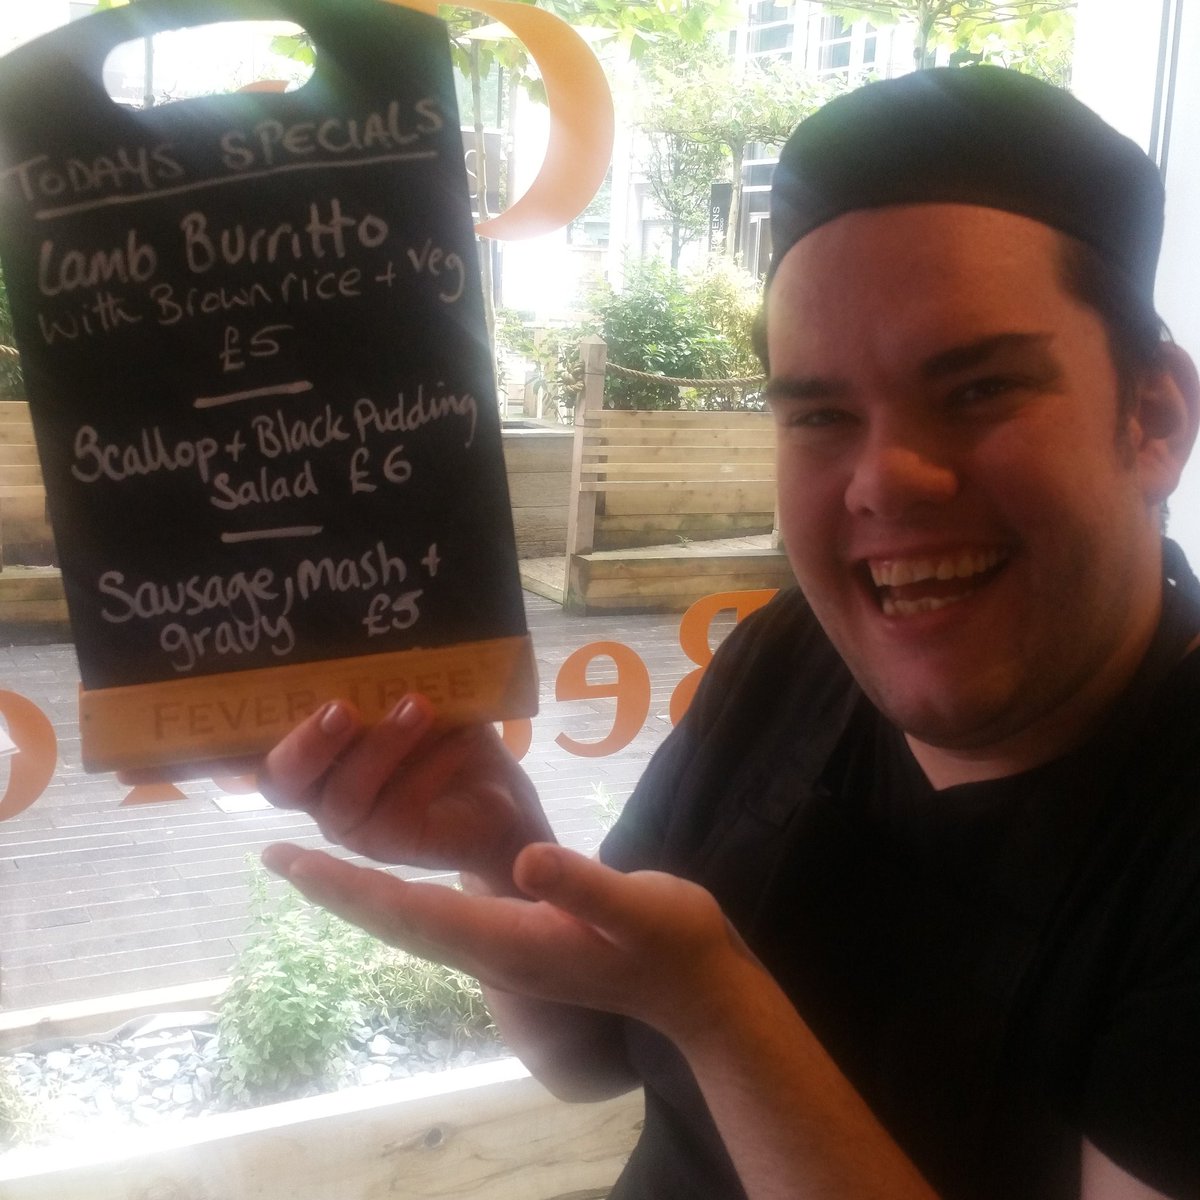 TODAYS SPECIALS
Lamb Burritto
with Brown rice + veg
£5
Scallop + Black Pudding
Salad £6
Sausage, Mash +
gravy £5
FEVER-TREE